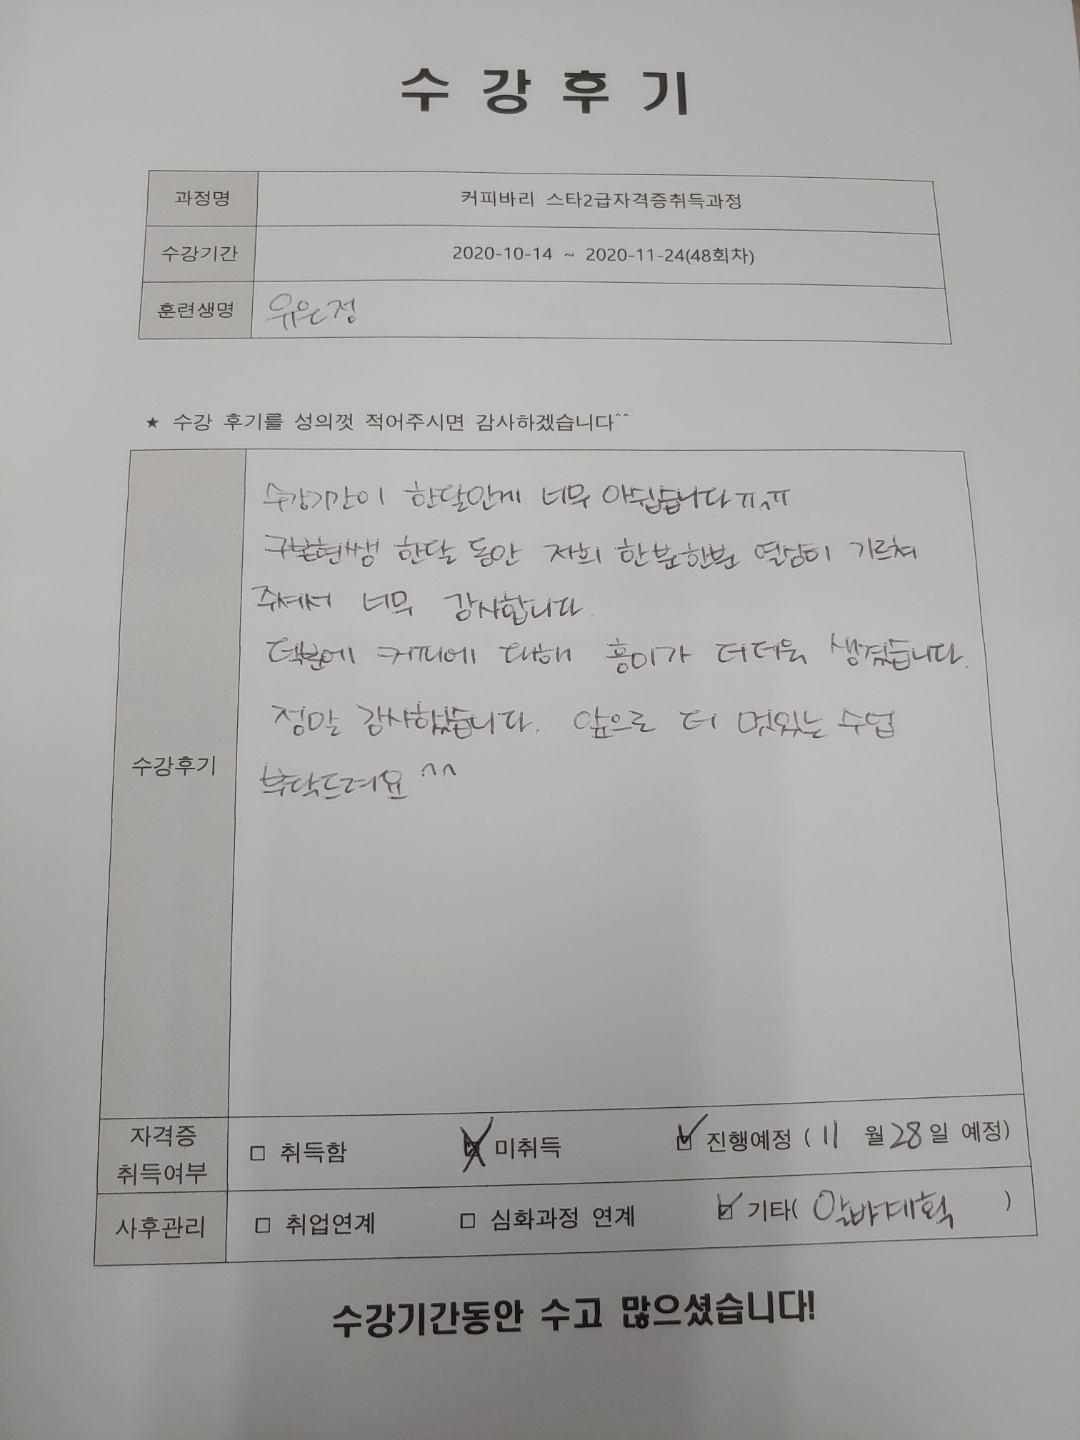 수강후기
과정명 커피바리 스타2급자격증취득과정
수강기간 2020-10-14 ~ 2020-11-24(48회차)
훈련생명 유은정
★ 수강 후기를 성의껏 적어주시면 감사하겠습니다^^
수강후기
수강기간이 한달안게 너무 아쉽습니다ㅠ^ㅠ
한달 동안 저희 한분한분 열심히 가르쳐
주셔서 너무 감사합니다.
덕분에 커피에 대해 흥미가 더더욱 생겼습니다.
정말 감사했습니다. 앞으로 더 멋있는 수업
부탁드려요 ^^
자격증 취득여부 □ 취득함 미취득 진행예정 ( 11 월 28 일 예정)
사후관리 □ 취업연계 □ 심화과정 연계 기타( 알바계획 )
수강기간동안 수고 많으셨습니다!